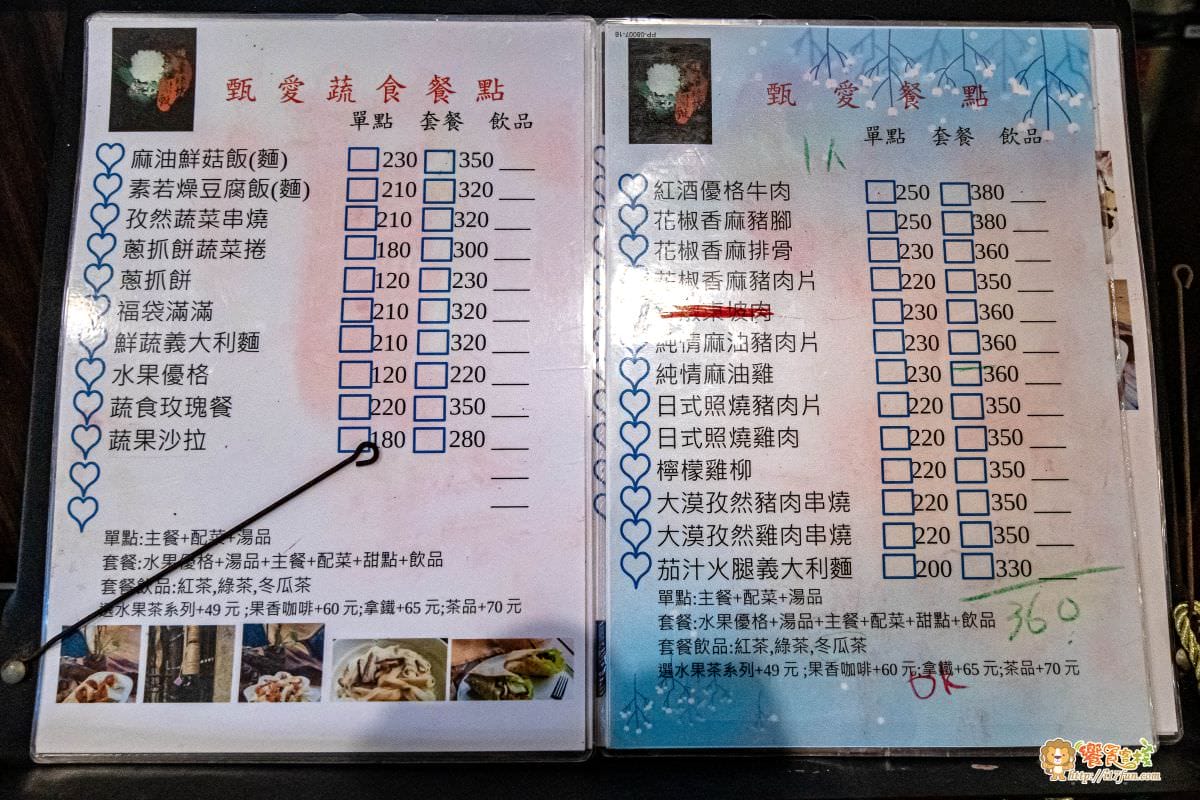 甄愛蔬食餐點
單點 套餐 飲品
麻油鮮菇飯(麵) 230 350 ___
素若燥豆腐飯(麵) 210 320 ___
孜然蔬菜串燒 210 320 ___
蔥抓餅蔬菜捲 180 300 ___
蔥抓餅 120 230 ___
福袋滿滿 210 320 ___
鮮蔬義大利麵 210 320 ___
水果優格 120 220 ___
蔬食玫瑰餐 220 350 ___
蔬果沙拉 180 280 ___
單點:主餐+配菜+湯品
套餐:水果優格+湯品+主餐+配菜+甜點+飲品
套餐飲品:紅茶,綠茶,冬瓜茶
選水果茶系列+49 元 ;果香咖啡+60 元;拿鐵+65 元;茶品+70 元
PP-08007-16
甄愛餐點
單點 套餐 飲品
紅酒優格牛肉 250 380 ___
花椒香麻豬腳 250 380 ___
花椒香麻排骨 230 360 ___
花椒香麻豬肉片 220 350 ___
東坡肉 230 360 ___
純情麻油豬肉片 230 360 ___
純情麻油雞 230 360 ___
日式照燒豬肉片 220 350 ___
日式照燒雞肉 220 350 ___
檸檬雞柳 220 350 ___
大漠孜然豬肉串燒 220 350 ___
大漠孜然雞肉串燒 220 350 ___
茄汁火腿義大利麵 200 330 ___
360
單點:主餐+配菜+湯品
套餐:水果優格+湯品+主餐+配菜+甜點+飲品
套餐飲品:紅茶,綠茶,冬瓜茶
選水果茶系列+49 元 ;果香咖啡+60 元;拿鐵+65 元;茶品+70 元
OK
饗食生活
http://t17fun.com/